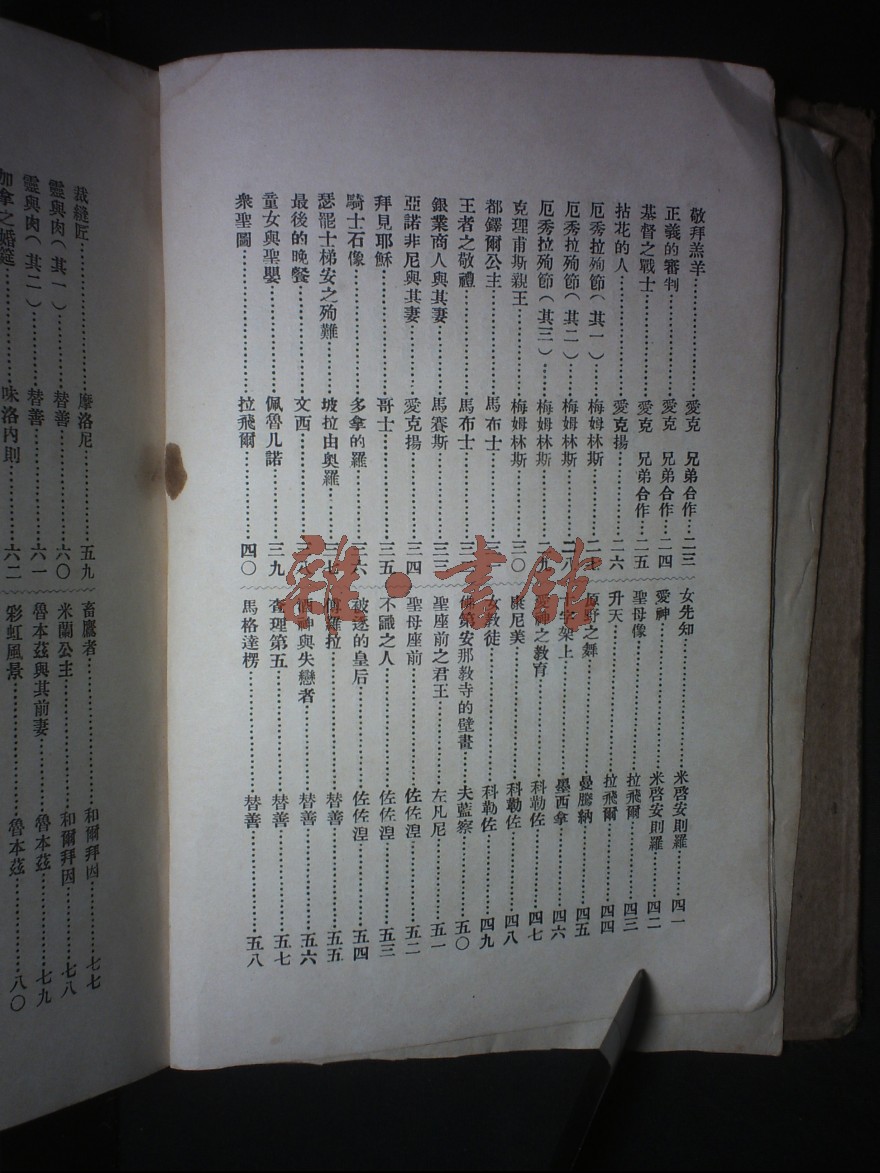 敬拜羔羊………………愛克 兄弟合作…二三
正義的審判……………愛克 兄弟合作…二四
基督之戰士……………愛克 兄弟合作…二五
拈花的人………………愛克揚…………二六
厄秀拉殉節(其一)……梅姆林斯………二七
厄秀拉殉節(其二)……梅姆林斯………二八
厄秀拉殉節(其三)……梅姆林斯………二九
克理甫斯親王…………梅姆林斯………三〇
都鐸爾公主……………馬布士…………三一
王者之敬禮……………馬布士…………三二
銀業商人與其妻………馬賽斯…………三三
亞諾非尼與其妻………愛克揚…………三四
拜見耶穌………………哥士……………三五
騎士石像………………多拿的羅………三六
瑟罷士梯安之殉難……坡拉由奧羅……三七
最後的晚餐……………文西……………三八
童女與聖嬰……………佩魯几諾………三九
衆聖圖…………………拉飛爾…………四〇
女先知…………………米啓安則羅……四一
愛神……………………米啓安則羅……四二
聖母像…………………拉飛爾…………四三
升天……………………拉飛爾…………四四
原野之舞………………曼騰納…………四五
十字架上………………墨西拿…………四六
神之教育………………科勒佐…………四七
康尼美…………………科勒佐…………四八
女教徒…………………科勒佐…………四九
佛第安那教寺的壁畫…夫藍察…………五〇
聖座前之君王…………左凡尼…………五一
聖母座前………………佐佐湼…………五二
不識之人………………佐佐湼…………五三
被逐的皇后……………佐佐湼…………五四
傅羅拉…………………替善……………五五
酒神與失戀者…………替善……………五六
查理第五………………替善……………五七
馬格達楞………………替善……………五八
裁縫匠…………………摩洛尼…………五九
靈與肉(其一)…………替善……………六〇
靈與肉(其二)…………替善……………六一
加拿之婚筵……………味洛內則………六二
畜鷹者…………………和爾拜因………七七
米蘭公主………………和爾拜因………七八
魯本茲與其前妻………魯本茲…………七九
彩虹風景………………魯本茲…………八〇
雜·書館